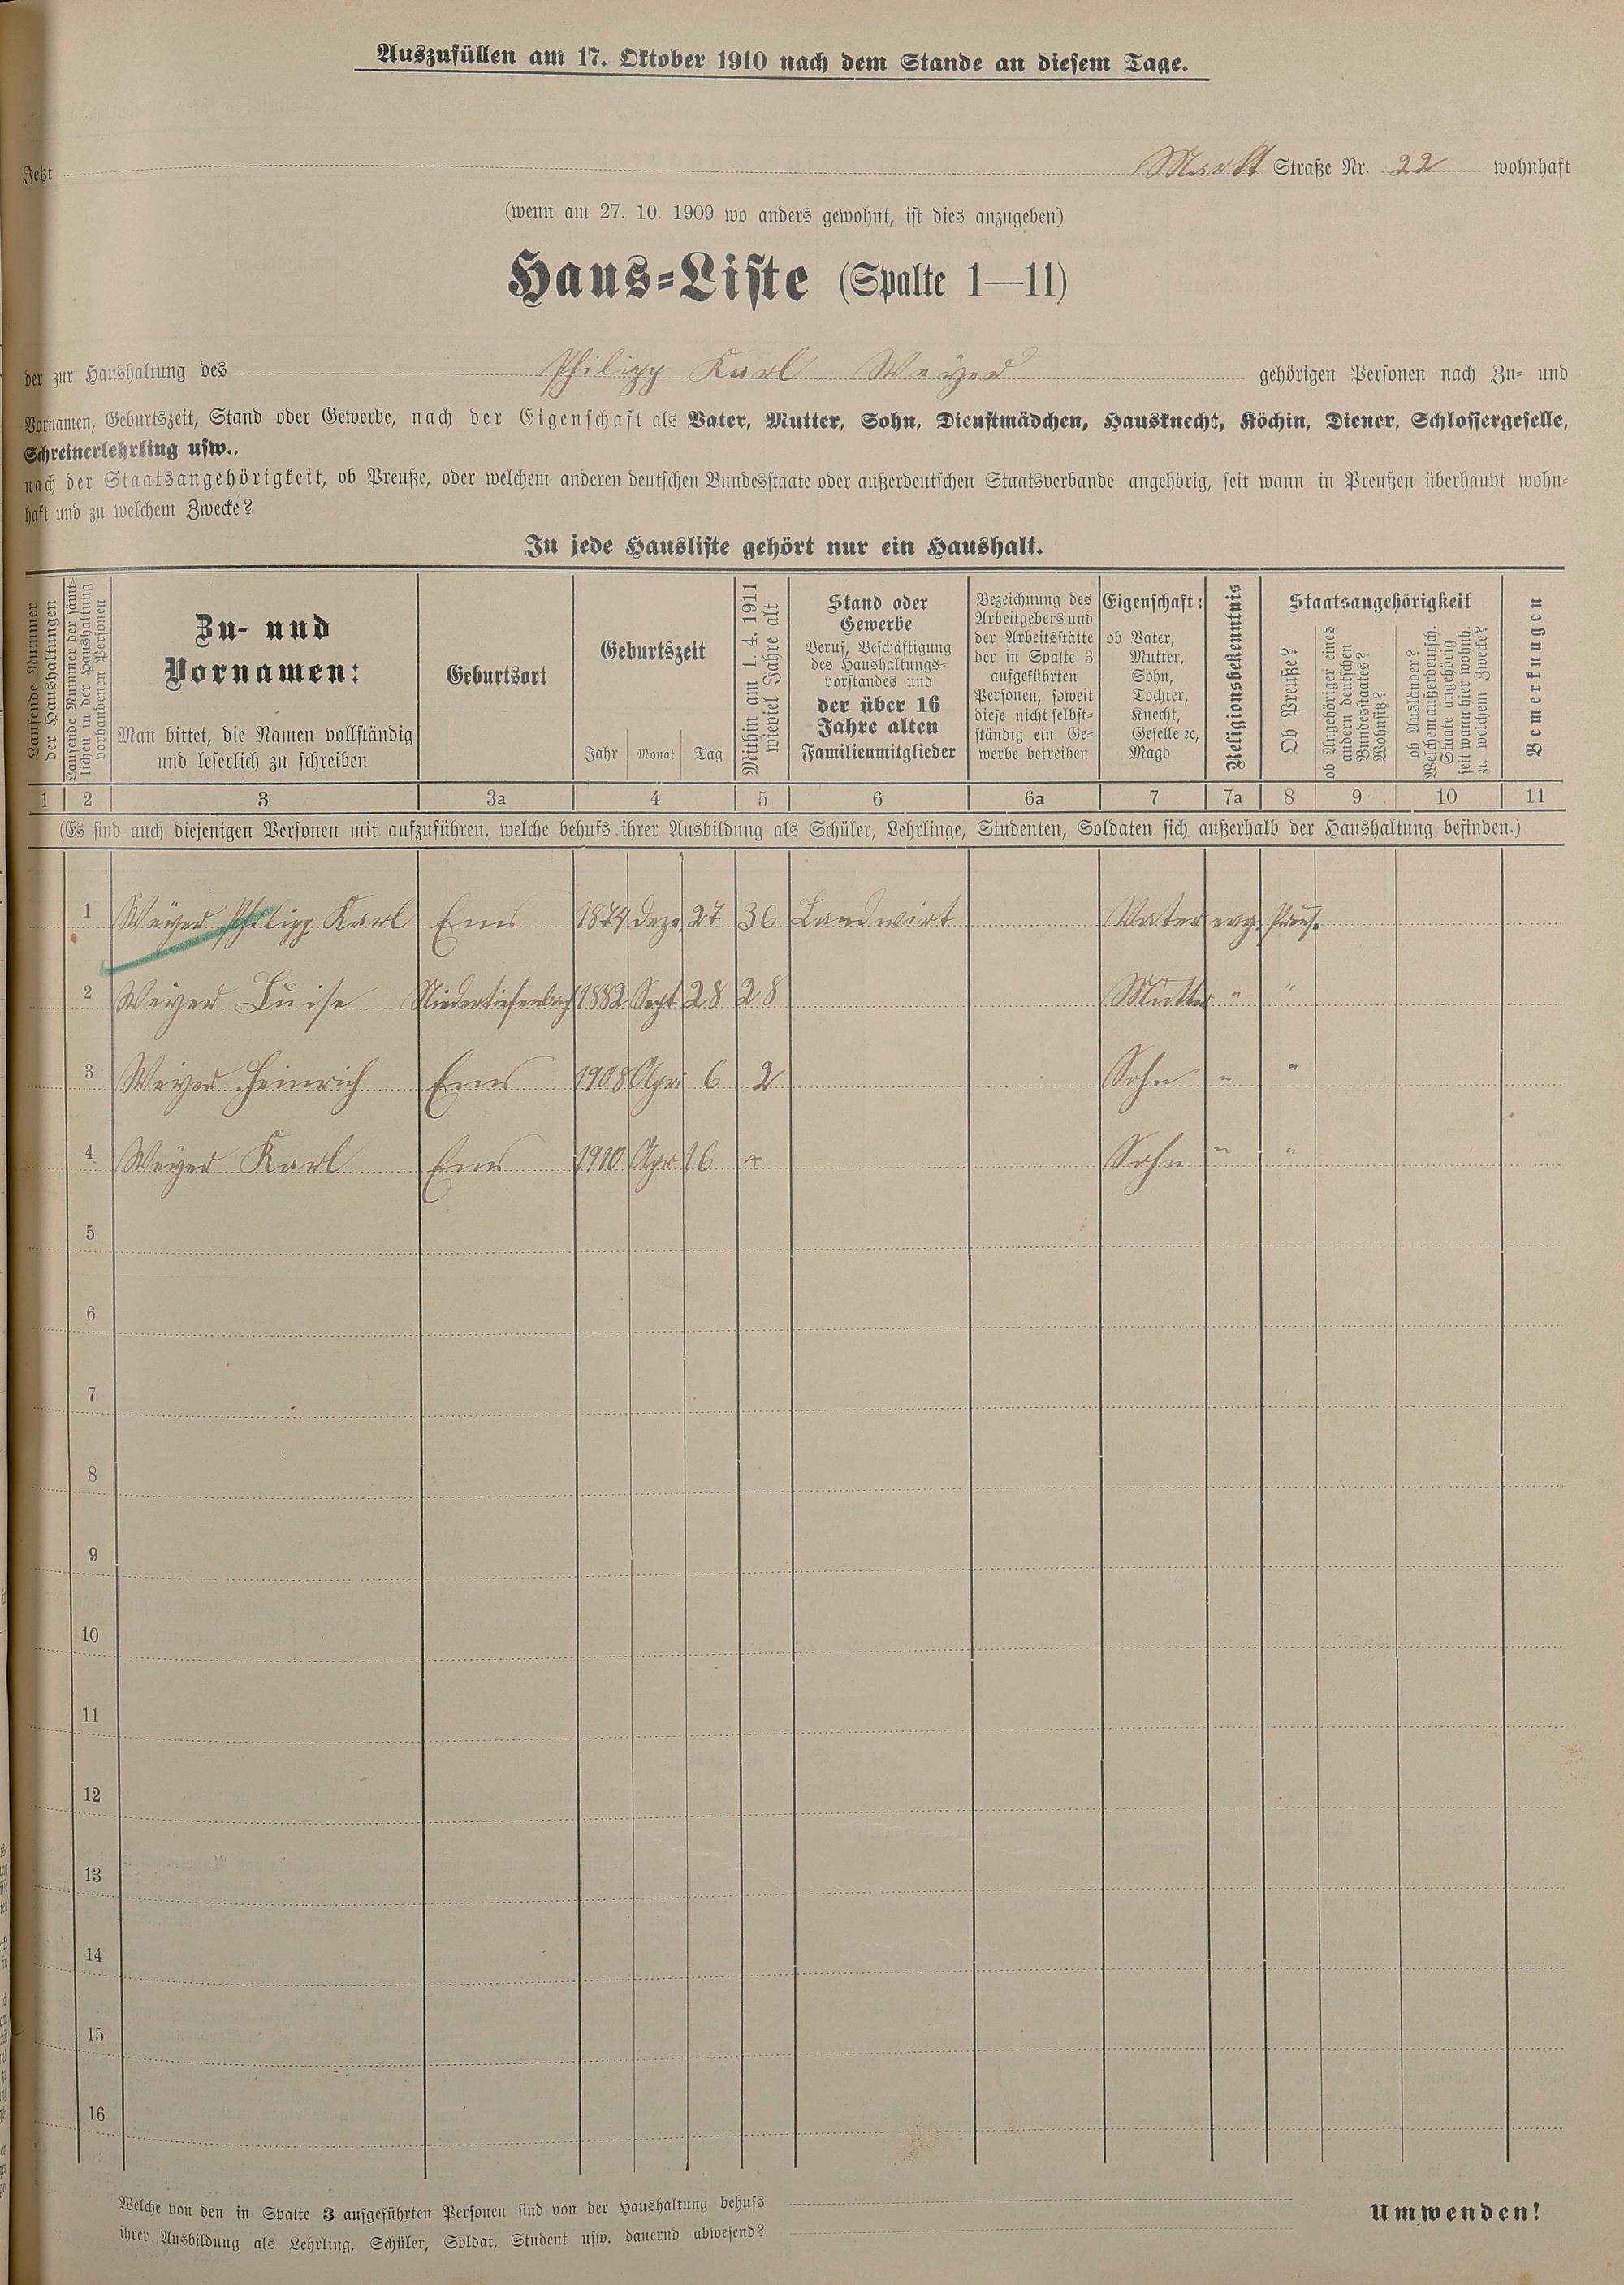 Auszufüllen am 17. Oktober 1910 nach dem Stande an diesem Tage.
Jetzt Markt Straße Nr. 22 wohnhaft
(wenn am 27. 10. 1909 wo anders gewohnt, ist dies anzugeben)
Haus-Liste (Spalte 1—11)
der zur Haushaltung des Philipp Karl Weyer gehörigen Personen nach Zu- und
Vornamen, Geburtszeit, Stand oder Gewerbe, nach der Eigenschaft als Vater, Mutter, Sohn, Dienstmädchen, Hausknecht, Köchin, Diener, Schlossergeselle,
Schreinerlehrling usw.,
nach der Staatsangehörigkeit, ob Preuße, oder welchem anderen deutschen Bundesstaate oder außerdeutschen Staatsverbande angehörig, seit wann in Preußen überhaupt wohn-
haft und zu welchem Zwecke?
In jede Hausliste gehört nur ein Haushalt.
Laufende Nummer
der Haushaltungen
Laufende Nummer der sämt-
lichen in der Haushaltung
vorhandenen Personen
Zu- und
Vornamen:
Man bittet, die Namen vollständig
und leserlich zu schreiben
Geburtsort
Geburtszeit
Jahr Monat Tag
Mithin am 1. 4. 1911
wieviel Jahre alt
Stand oder
Gewerbe
Beruf, Beschäftigung
des Haushaltungs-
vorstandes und
der über 16
Jahre alten
Familienmitglieder
Bezeichnung des
Arbeitgebers und
der Arbeitsstätte
der in Spalte 3
aufgeführten
Personen, soweit
diese nicht selbst-
ständig ein Ge-
werbe betreiben
Eigenschaft:
ob Vater,
Mutter,
Sohn,
Tochter,
Knecht,
Geselle ꝛc,
Magd
Religionsbekenntnis
Staatsangehörigkeit
Ob Preuße?
ob Angehöriger eines
andern deutschen
Bundesstaates?
Wohnsitz?
ob Ausländer?
Welchem außerdeutsch.
Staate angehörig
seit wann hier wohnh.
zu welchem Zwecke?
Bemerkungen
1 2 3 3a 4 5 6 6a 7 7a 8 9 10 11
(Es sind auch diejenigen Personen mit aufzuführen, welche behufs ihrer Ausbildung als Schüler, Lehrlinge, Studenten, Soldaten sich außerhalb der Haushaltung befinden.)
1 Weyer Philipp Karl Ems 1874 Deze 27 36 Landwirt Vater evg. Preuße
2 Weyer Luise Niedertiefenbach 1882 Sept 28 28 Mutter " "
3 Weyer Heinrich Ems 1908 Apri 6 2 Sohn " "
4 Weyer Karl Ems 1910 Apr 16 Sohn " "
5
6
7
8
9
10
11
12
13
14
15
16
Welche von den in Spalte 3 aufgeführten Personen sind von der Haushaltung behufs
ihrer Ausbildung als Lehrling, Schüler, Soldat, Student usw. dauernd abwesend?
Umwenden!